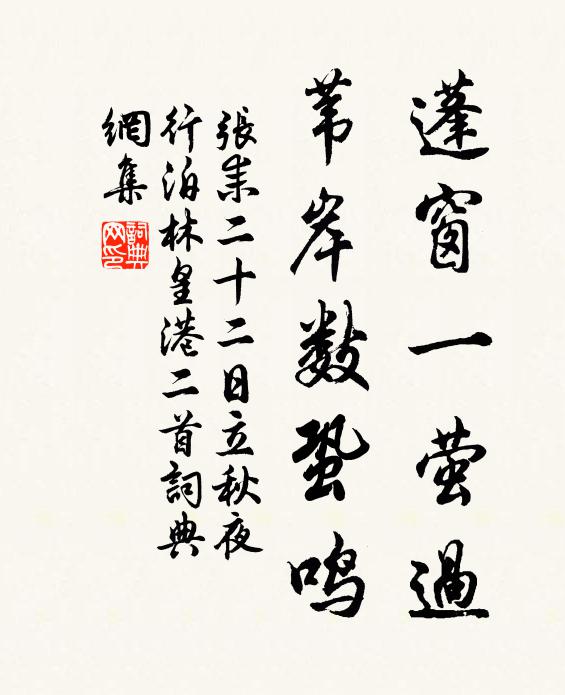 蓬窗一萤過
苇岸数蛩鸣
張耒二十二日立秋夜
行泊林皇港二首詞典
網集
詞典
网印